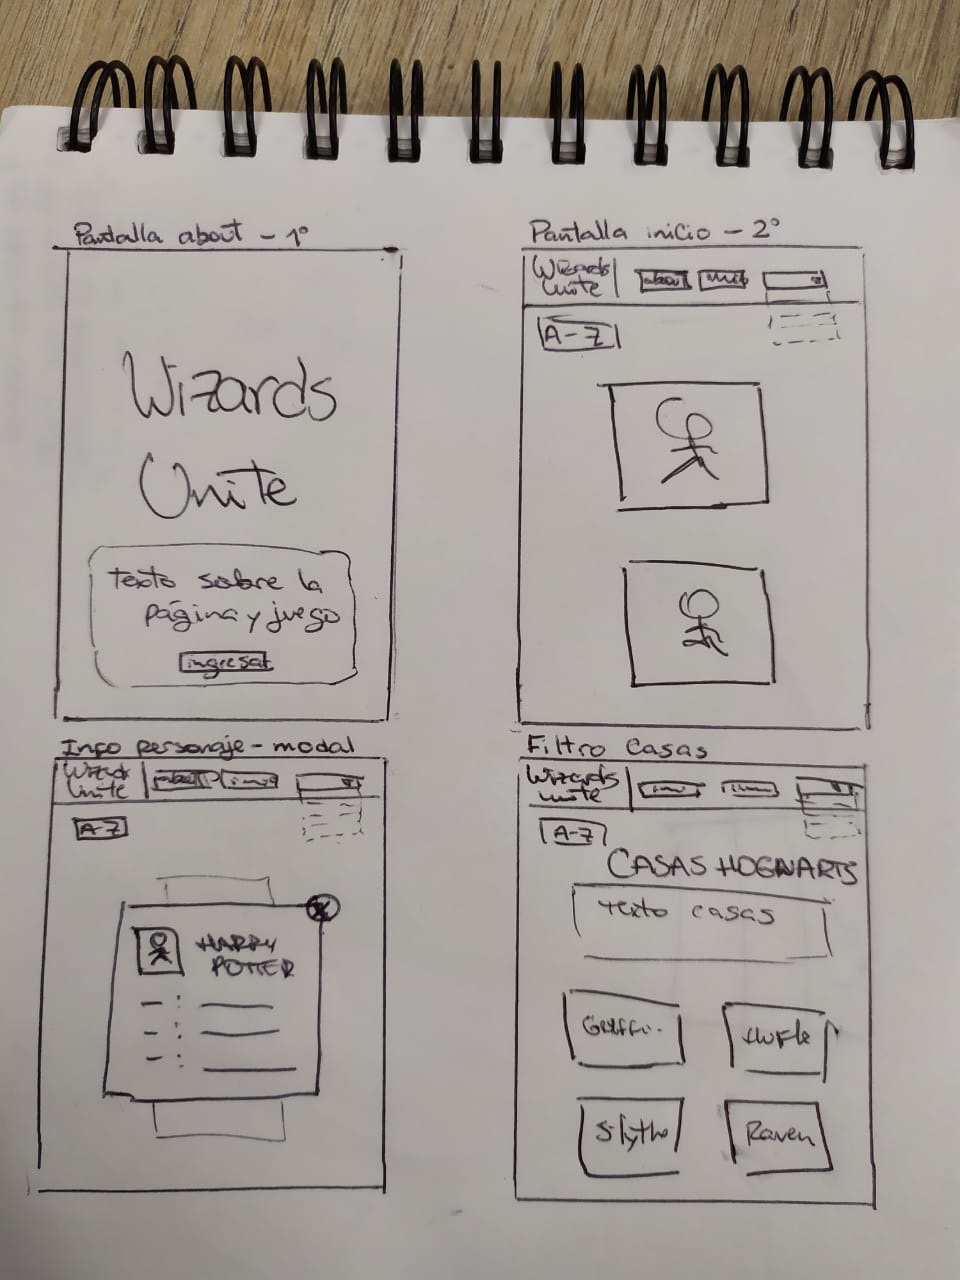 Pantalla about - 1°
Wizards
Unite
Texto sobre la
página y juego
ingresar
Pantalla inicio - 2°
Wizards
Unite
about
A-Z
Info personaje - modal
Wizards
Unite
about
A-Z
HARRY
POTTER
Filtro Casas
Wizards
Unite
A-Z
CASAS HOGWARTS
Texto casas
Griffi.
Hufle
Slythe
Raven